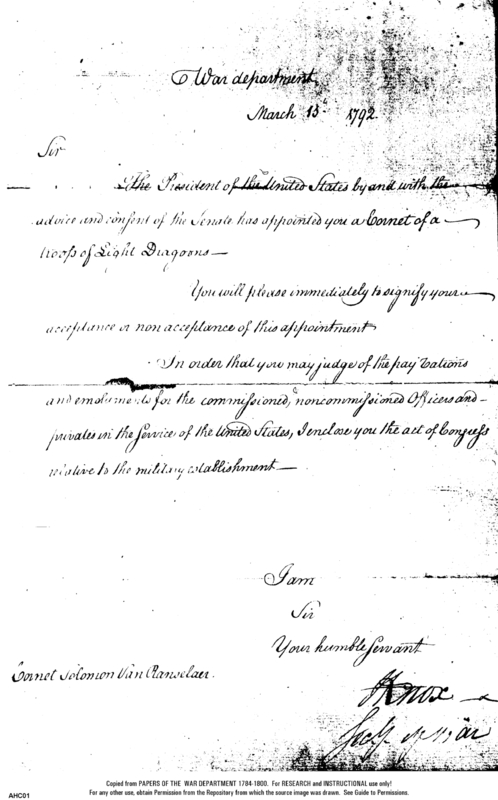 War department,
March 15 1792.
Sir
The President of the United States by and with the
advice and consent of the Senate has appointed you a Cornet of a
troop of Light Dragoons—
You will please immediately to signify your
acceptance or non acceptance of this appointment
In order that you may judge of the pay rations
and emoluments for the commissioned, noncommissioned Officers and
privates in the Service of the United States, I enclose you the act of Congress
relative to the military establishment—
I am
Sir
Your humble Servant
HKnox
Secy of War
Cornet Solomon Van Ranselaer.
Copied from PAPERS OF THE WAR DEPARTMENT 1784-1800. For RESEARCH and INSTRUCTIONAL use only!
For any other use, obtain Permission from the Repository from which the source image was drawn. See Guide to Permissions.
AHC01